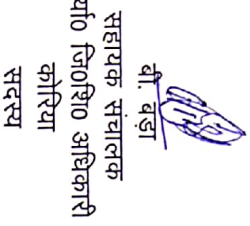 बी. बड़ा
सहायक संचालक
र्या० जि०शि० अधिकारी
कोरिया
सदस्य